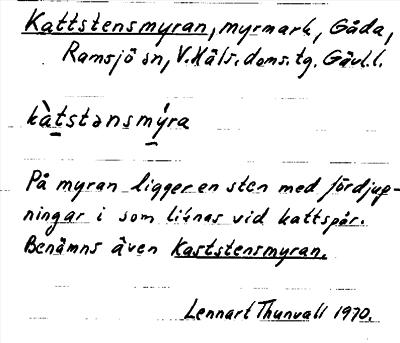 Kattstensmyran, myrmark, Gåda,
Ramsjö sn, V. Häls. doms.tg. Gävl.l.
kàtstənsmýra
På myran ligger en sten med fördjup-
ningar i som liknas vid kattspår.
Benämns även Kaststensmyran.
Lennart Thunvall 1970.